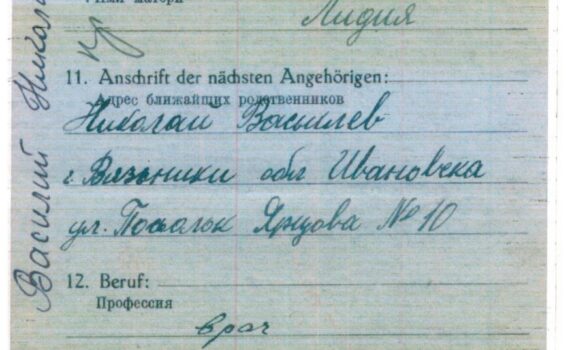 Имя матери
Лидия
11. Anschrift der nächsten Angehörigen:
Адрес ближайших родственников
Николай Василев
г. Вязьники обл Ивановска
ул. Посолок Ярцова № 10
12. Beruf:
Профессия
врач
Василий Никола